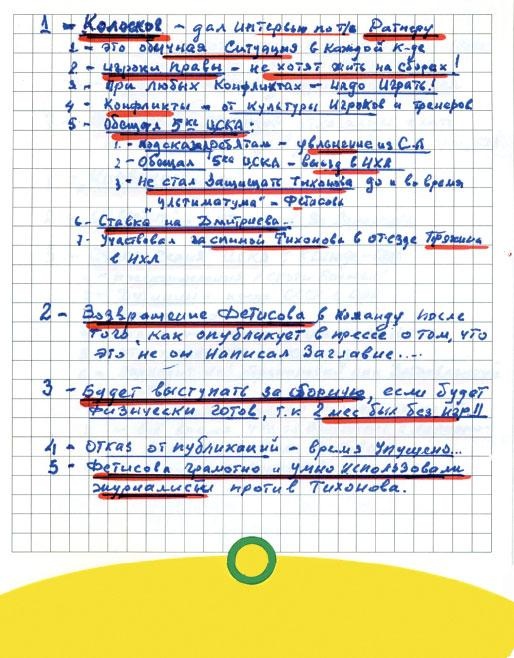 1 - Колосков - дал интервью по т/в Ратнеру
1 - это обычная ситуация в каждой к-де
2 - игроки правы - не хотят жить на сборах!
3 - При любых конфликтах - надо играть!
4 - Конфликты - от культуры игроков и тренеров
5 - Обещал 5ке ЦСКА:
1. - подсказал ребятам - увольнение из С.А
2 - Обещал 5ке ЦСКА - выезд в НХЛ
3 - Не стал защищать Тихонова до и во время
"ультиматума" - Фетисова
6 - Ставка на Дмитриева..
7. Участвовал за спиной Тихонова в отъезде Пряхина
в НХЛ
2 - Возвращение Фетисова в команду после
того, как опубликует в прессе о том, что
это не он написал Заглавие....
3 - Будет выступать за сборную, если будет
физически готов, т.к 2 мес был без игр!!
4 - Отказ от публикаций - время упущено...
5 - Фетисова грамотно и умно использовали
журналисты против Тихонова.